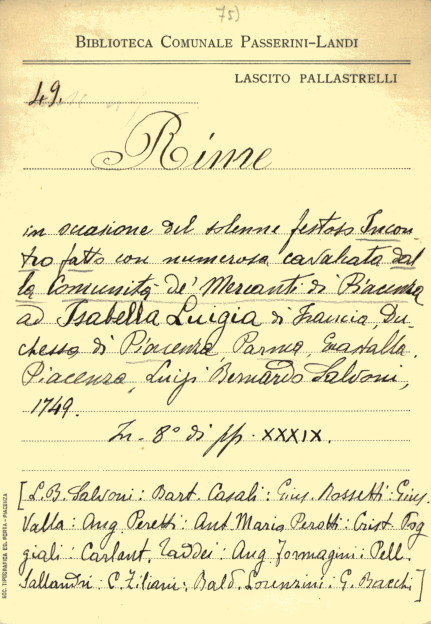 75)
BIBLIOTECA COMUNALE PASSERINI-LANDI
LASCITO PALLASTRELLI
49.
Rime
in occasione del solenne festoso Incon-
tro fatto con numerosa cavalcata dal
la Comunità de' Mercanti di Piacenza
ad Isabella Luigia di Francia, Du-
chessa di Piacenza, Parma, Guastalla.
Piacenza, Luigi Bernardo Salvoni,
1749.
In-8° di pp. XXXIX.
[L. B. Salvoni: Bart. Casali: Gius. Rossetti: Gius.
Valla: Ang. Peretti: Ant. Maria Perotti: Crist. Pog
giali: Carlant. Taddei: Ang. Formagini: Pell.
Sallandri: C. Ziliani: Bald. Lorenzini: G. Bacchi]
SOC. TIPOGRAFICA ED. PORTA - PIACENZA